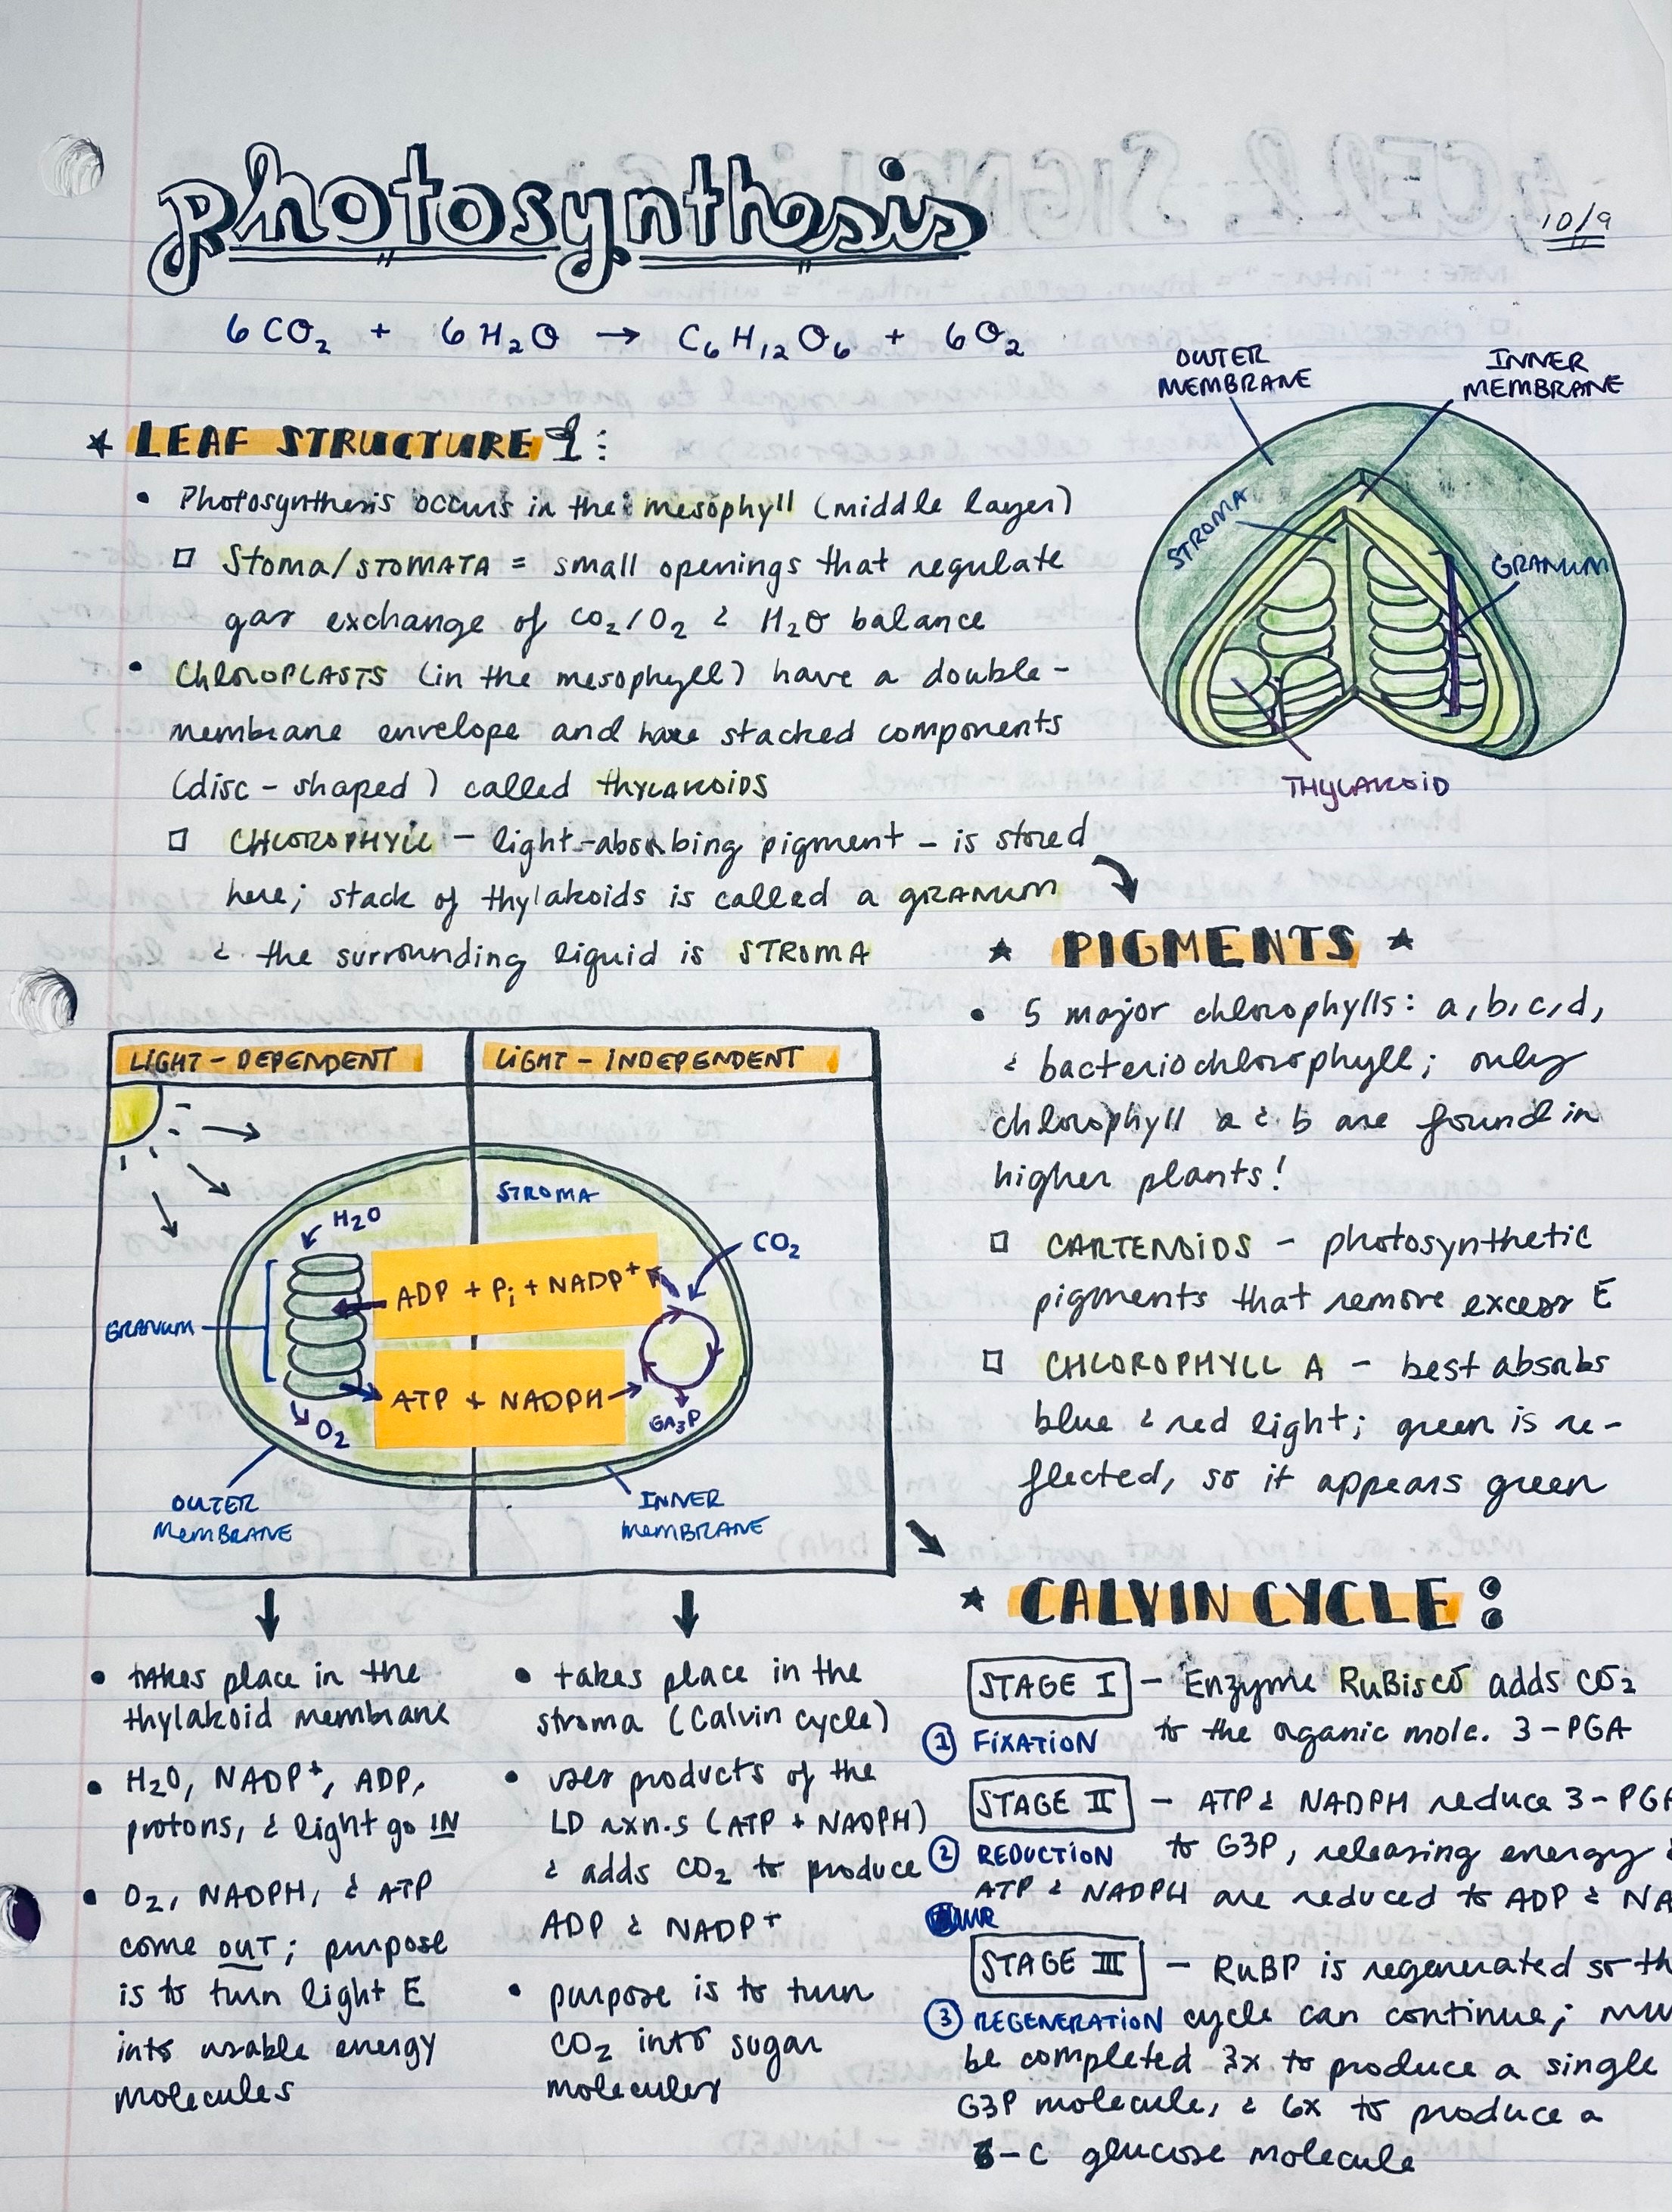 photosynthesis
10/9
6 CO₂ + 6 H₂O → C₆H₁₂O₆ + 6 O₂
OUTER
MEMBRANE
INNER
MEMBRANE
STROMA
GRANUM
THYLAKOID
★ LEAF STRUCTURE :
• Photosynthesis occurs in the mesophyll (middle layer)
□ Stoma/STOMATA = small openings that regulate
gas exchange of CO₂/O₂ & H₂O balance
• CHLOROPLASTS (in the mesophyll) have a double-
membrane envelope and have stacked components
(disc-shaped) called THYLAKOIDS
□ CHLOROPHYLL – light-absorbing pigment – is stored
here; stack of thylakoids is called a GRANUM
& the surrounding liquid is STROMA
★ PIGMENTS ★
• 5 major chlorophylls: a, b, c, d,
& bacteriochlorophyll; only
chlorophyll a & b are found in
higher plants!
□ CARTENOIDS – photosynthetic
pigments that remove excess E
□ CHLOROPHYLL A – best absorbs
blue & red light; green is re-
flected, so it appears green
LIGHT-DEPENDENT
LIGHT-INDEPENDENT
STROMA
H₂O
CO₂
ADP + Pi + NADP⁺
GRANUM
ATP + NADPH
GA₃P
O₂
OUTER
MEMBRANE
INNER
MEMBRANE
• takes place in the
thylakoid membrane
• H₂O, NADP⁺, ADP,
protons, & light go IN
• O₂, NADPH, & ATP
come OUT; purpose
is to turn light E
into usable energy
molecules
• takes place in the
stroma (Calvin cycle)
• uses products of the
LD rxn.s (ATP + NADPH)
& adds CO₂ to produce
ADP & NADP⁺
• purpose is to turn
CO₂ into sugar
molecules
★ CALVIN CYCLE:
STAGE I – Enzyme RuBisCO adds CO₂
① FIXATION to the organic mole. 3-PGA
STAGE II – ATP & NADPH reduce 3-PGA
② REDUCTION to G3P, releasing energy &
ATP & NADPH are reduced to ADP & NA
STAGE III – RuBP is regenerated so th
③ REGENERATION cycle can continue; mu
be completed 3x to produce a single
G3P molecule, & 6x to produce a
6-C glucose molecule